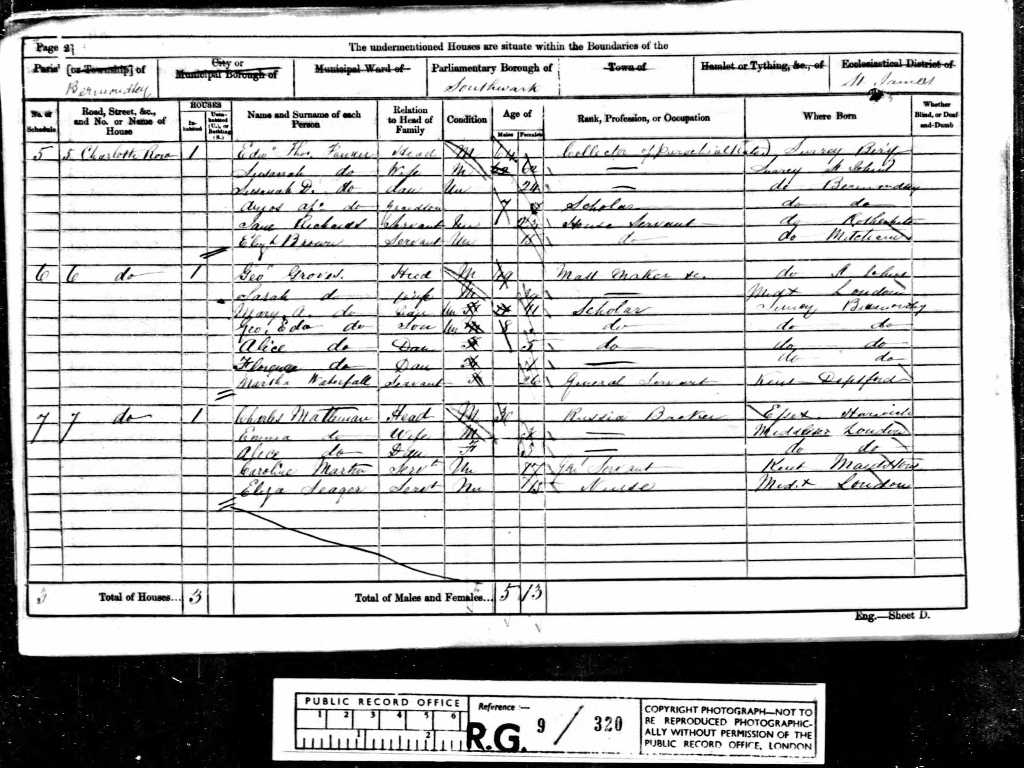 Page 2
The undermentioned Houses are situate within the Boundaries of the
Parish [or Township] of
City or Municipal Borough of
Municipal Ward of
Parliamentary Borough of
Town of
Hamlet or Tything, &c., of
Ecclesiastical District of
Bermondsey
Southwark
St James
No. of Schedule
Road, Street, &c., and No. or Name of House
HOUSES
Inhabited
Uninhabited (U.), or Building (B.)
Name and Surname of each Person
Relation to Head of Family
Condition
Age of
Males
Females
Rank, Profession, or Occupation
Where Born
Whether Blind, or Deaf-and-Dumb
5 5 Charlotte Row 1 Edwd Thos Head M 64 Collector of Surrey
Susanah do Wife M 62 — Surrey St Johns
Susanah do dau Un 24 — do Bermondsey
do Grandson 7 Scholar do do
Jane Richards Servant Un House Servant do Rotherhithe
Elizh Brown Servant Un 18 do do Mitcham
6 6 do 1 Geo Groves Head M 49 Malt Maker &c. do St Johns
Sarah do Wife M — Middx London
Mary A. do Un 11 Scholar Surrey Bermondsey
Geo. Edw do Son Un 8 do do do
Alice do Dau 5 do do do
Florence do Dau — do do
Martha Waterfall Servant 26 General Servant Kent Deptford
7 7 do 1 Charles Head M 30 Russia Broker Essex Harwich
Emma do Wife M — Middlesex London
Alice do Dau 3 — do do
Caroline Martin Servt Un 17 Genl Servant Kent Maidstone
Eliza Seager Servt Un 15 Nurse Middx London
3 Total of Houses... 3 Total of Males and Females... 5 13
Eng.—Sheet D.
PUBLIC RECORD OFFICE
1 2 3 4 5 6
1 2
Reference :—
R.G. 9 / 320
COPYRIGHT PHOTOGRAPH—NOT TO
BE REPRODUCED PHOTOGRAPHIC-
ALLY WITHOUT PERMISSION OF THE
PUBLIC RECORD OFFICE, LONDON